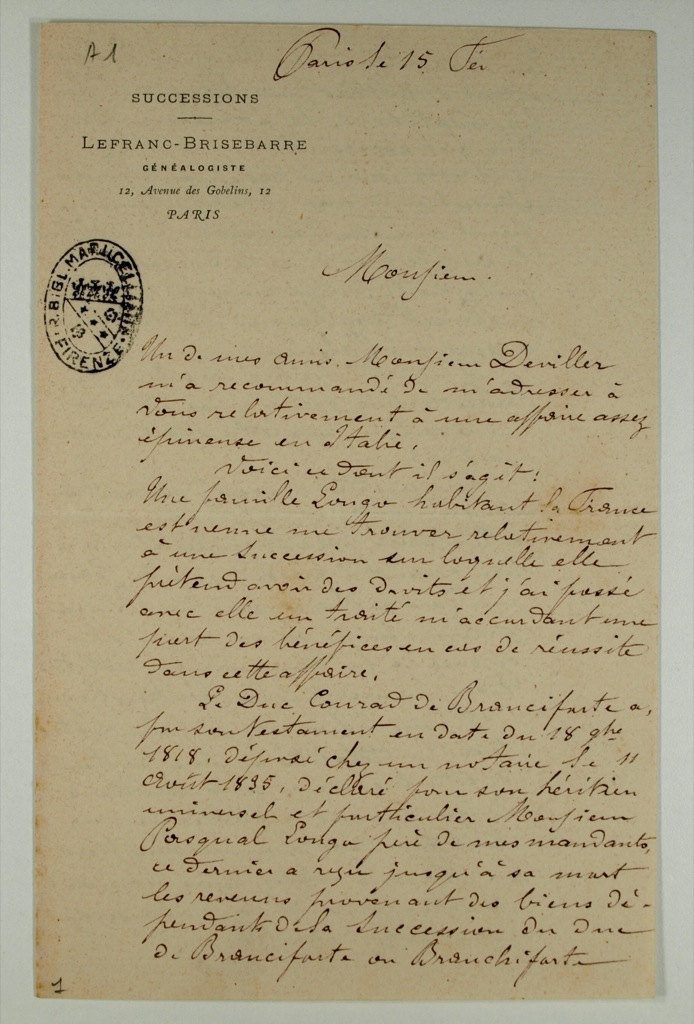 A1
Paris le 15 Fév
SUCCESSIONS
LEFRANC-BRISEBARRE
GÉNÉALOGISTE
12, Avenue des Gobelins, 12
PARIS
R. BIBL. MARUCELLIANA FIRENZE
Monsieur.
Un de mes amis, Monsieur Deviller
m'a recommandé de m'adresser à
vous relativement à une affaire assez
épineuse en Italie.
Voici ce dont il s'agit :
Une famille Longo habitant la France
est venue me trouver relativement
à une succession sur laquelle elle
prétend avoir des droits et j'ai passé
avec elle un traité m'accordant une
part des bénéfices en cas de réussite
dans cette affaire.
Le Duc Conrad de Branciforte a,
par son testament en date du 18 9bre
1818, déposé chez un notaire le 11
Août 1835, déclaré pour son héritier
universel et particulier Monsieur
Pasqual Longo père de mes mandants,
ce dernier a reçu jusqu'à sa mort
les revenus provenant des biens dé-
pendants de la succession du duc
de Branciforte ou Branchiforte
1